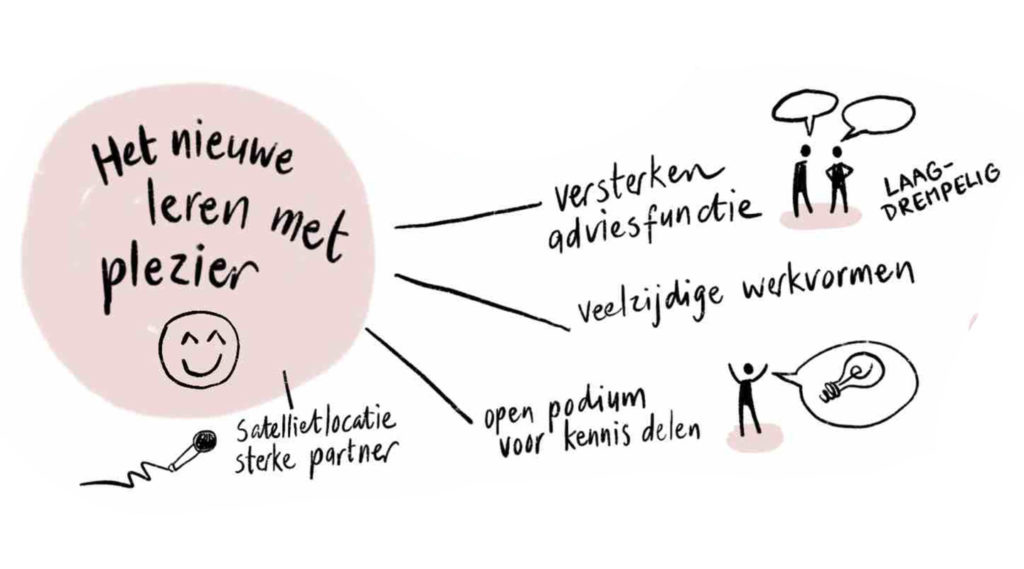 Het nieuwe
leren met
plezier
versterken
adviesfunctie
LAAG-
DREMPELIG
veelzijdige werkvormen
open podium
voor kennis delen
Satellietlocatie
sterke partner